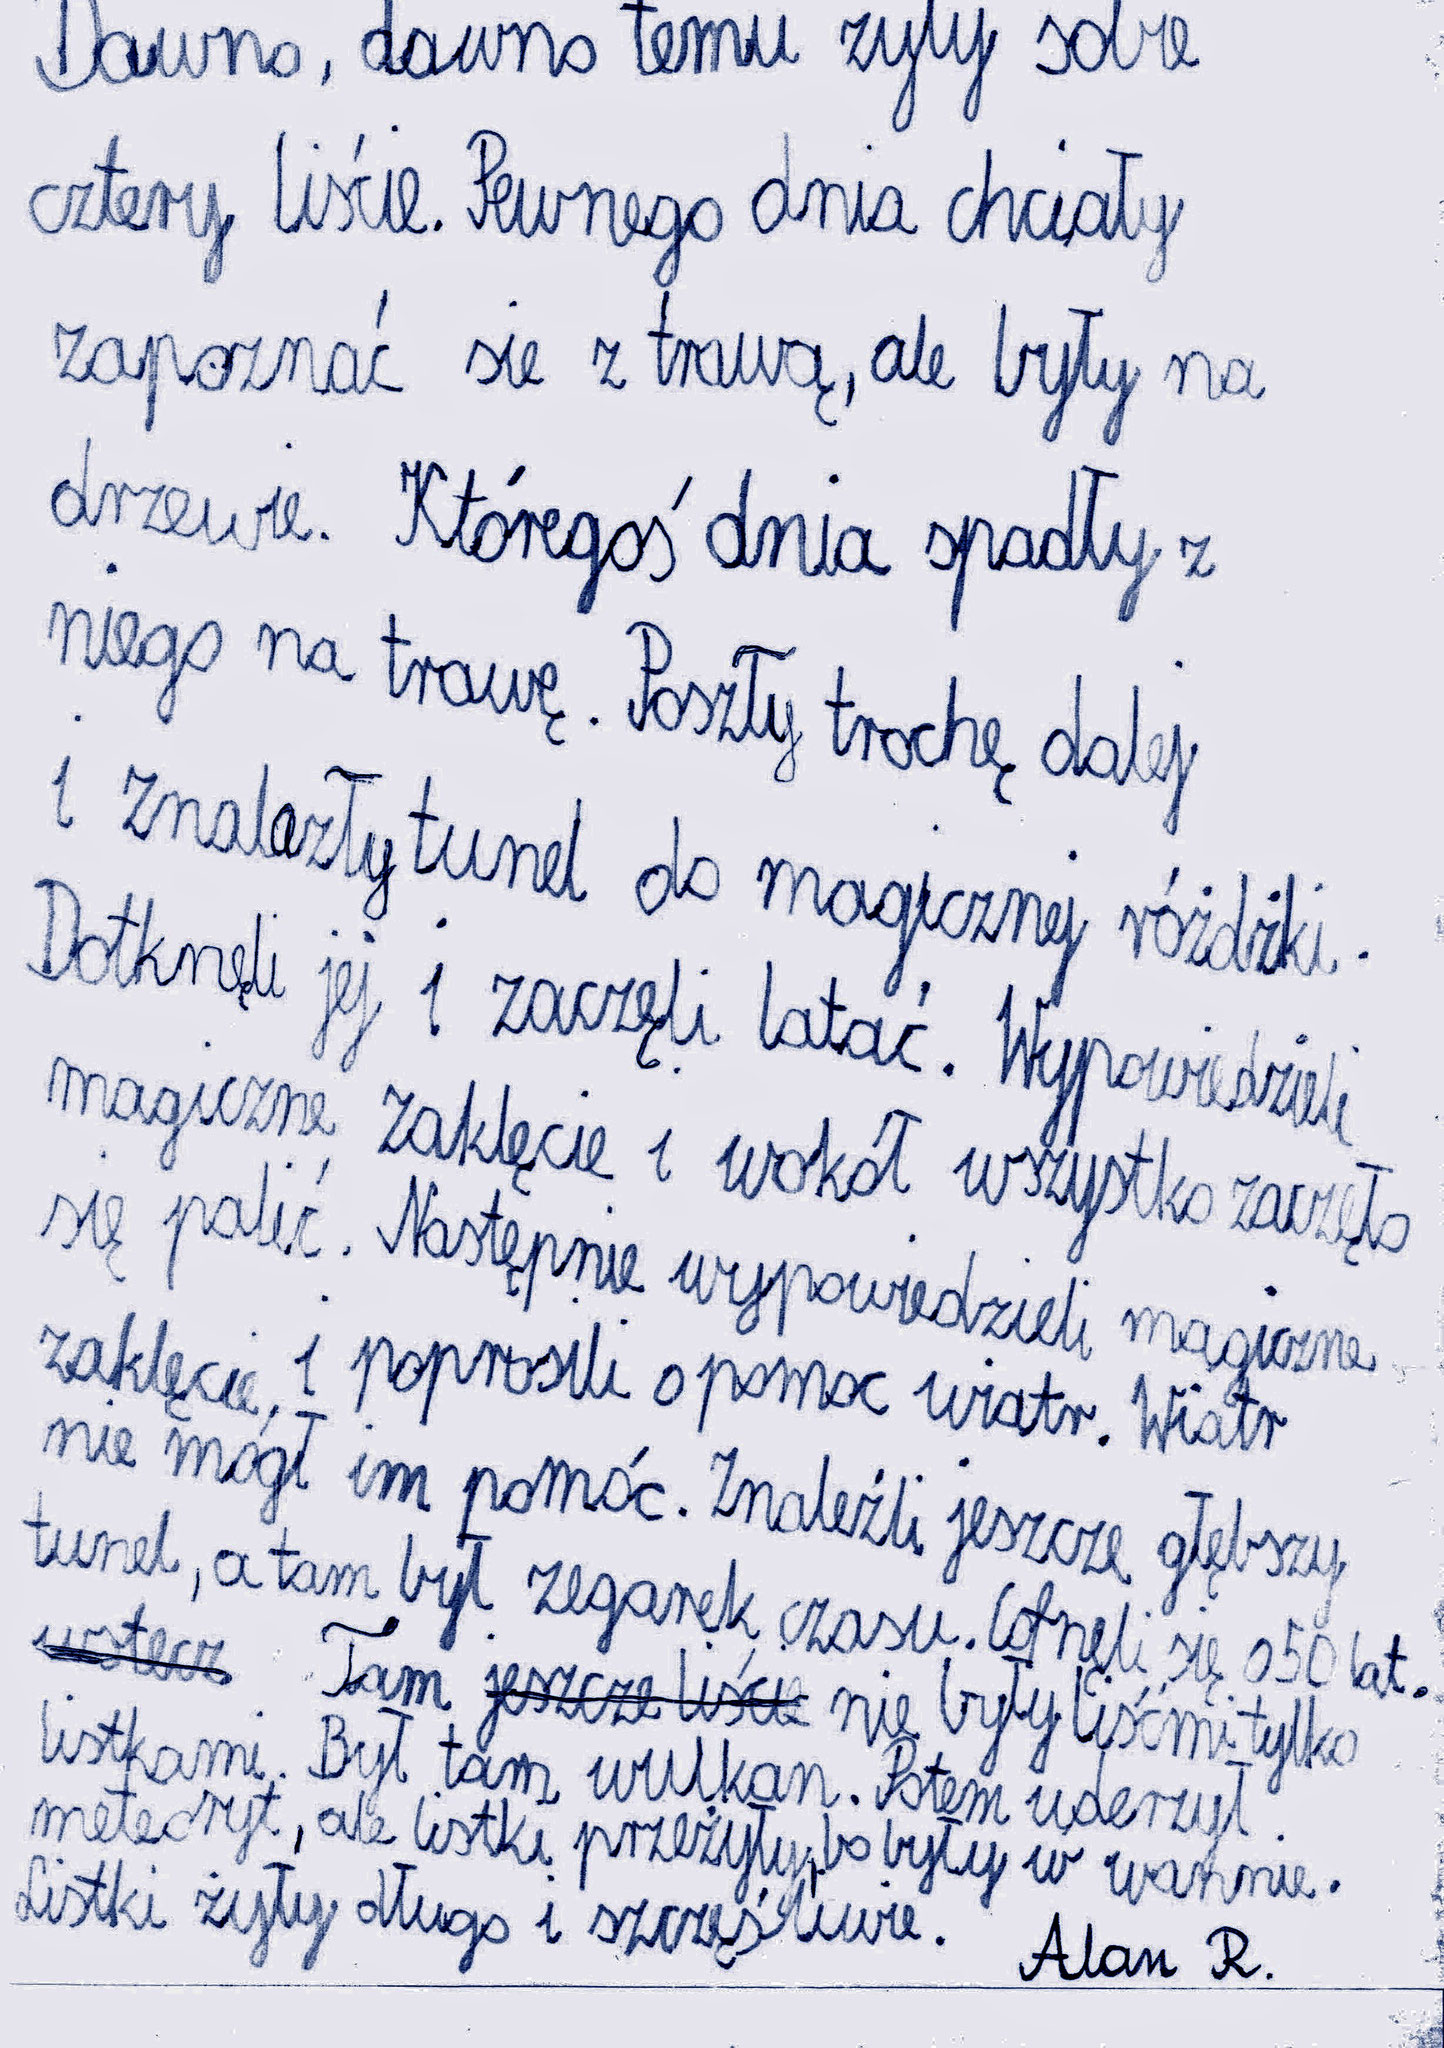 Dawno, dawno temu żyły sobie
cztery liście. Pewnego dnia chciały
zapoznać sie z trawą, ale były na
drzewie. Któregoś dnia spadły z
niego na trawę. Poszły trochę dalej
i znalazły tunel do magicznej różdżki.
Dotknęli jej i zaczęli latać. Wypowiedzieli
magiczne zaklęcie i wokół wszystko zaczęło
się palić. Następnie wypowiedzieli magiczne
zaklęcie, i poprosili o pomoc wiatr. Wiatr
nie mógł im pomóc. Znaleźli jeszcze głębszy
tunel, a tam był zegarek czasu. Cofnęli się o 50 lat.
wstecz Tam jeszcze liście nie były liśćmi tylko
listkami. Był tam wulkan. Potem uderzył
meteoryt, ale listki przeżyły, bo były w wannie.
Listki żyły długo i szczęśliwie.
Alan R.